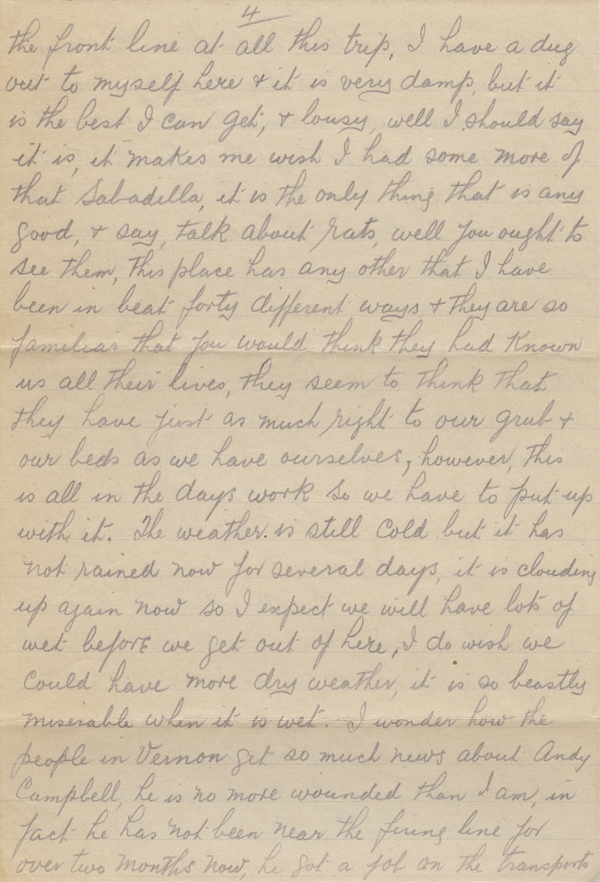 4
the front line at all this trip, I have a dug
out to myself here & it is very damp, but it
is the best I can get, & lousy, well I should say
it is, it makes me wish I had some more of
that Sabadilla, it is the only thing that is any
good, & say, talk about rats, well you ought to
see them, this place has any other that I have
been in beat forty different ways & they are so
familiar that you would think they had known
us all their lives, they seem to think that
they have just as much right to our grub &
our beds as we have ourselves, however, this
is all in the days work so we have to put up
with it. The weather is still cold but it has
not rained now for several days, it is clouding
up again now so I expect we will have lots of
wet before we get out of here, I do wish we
could have more dry weather, it is so beastly
miserable when it is wet. I wonder how the
people in Vernon get so much news about Andy
Campbell, he is no more wounded than I am, in
fact he has not been near the firing line for
over two months now, he got a job on the transports